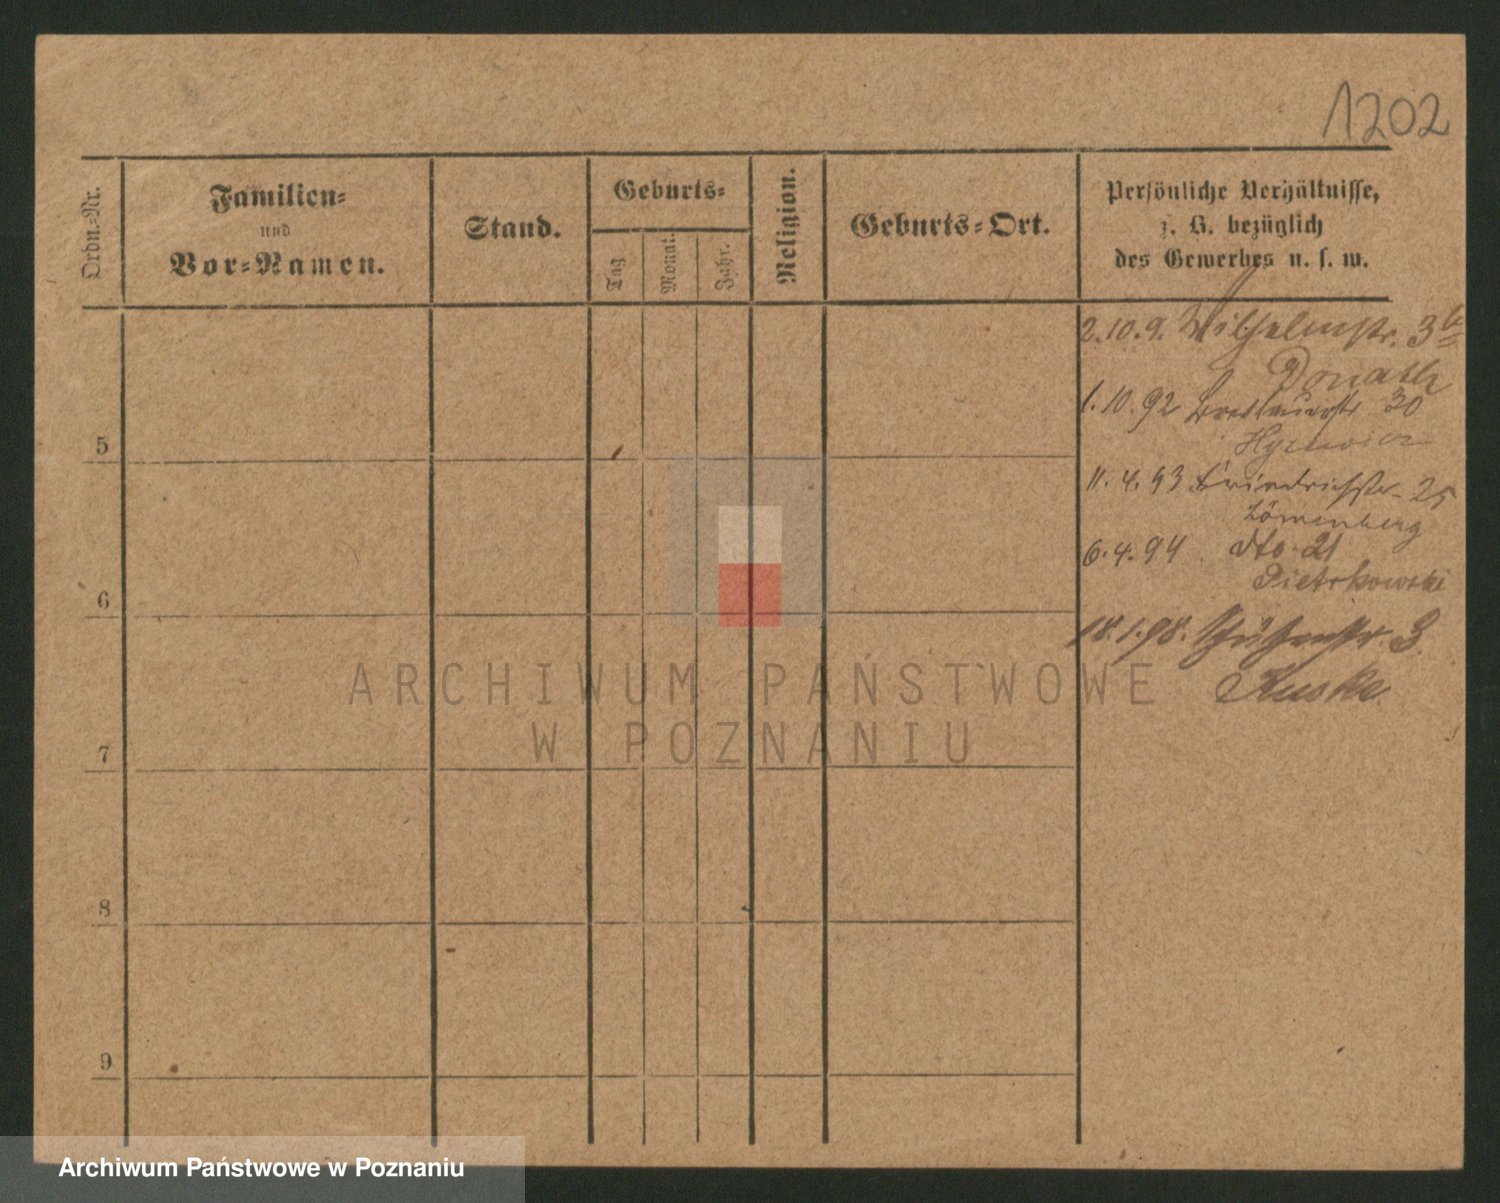 1202
Ordn.-Nr.
Familien-
und
Vor-Namen.
Stand.
Geburts-
Tag
Monat.
Jahr.
Religion.
Geburts-Ort.
Persönliche Verhältnisse,
z. B. bezüglich
des Gewerbes u. s. w.
2.10.9. Wilhelmstr. 3
Donath
1.10.92 Breslauerstr 30
11.4.93 Friedrichstr. 25
Löwenberg
6.4.94. dto 21
Pietrkowski
18.1.98. Schützenstr. 3.
Kuska
5
6
7
8
9
ARCHIWUM PAŃSTWOWE
W POZNANIU
Archiwum Państwowe w Poznaniu